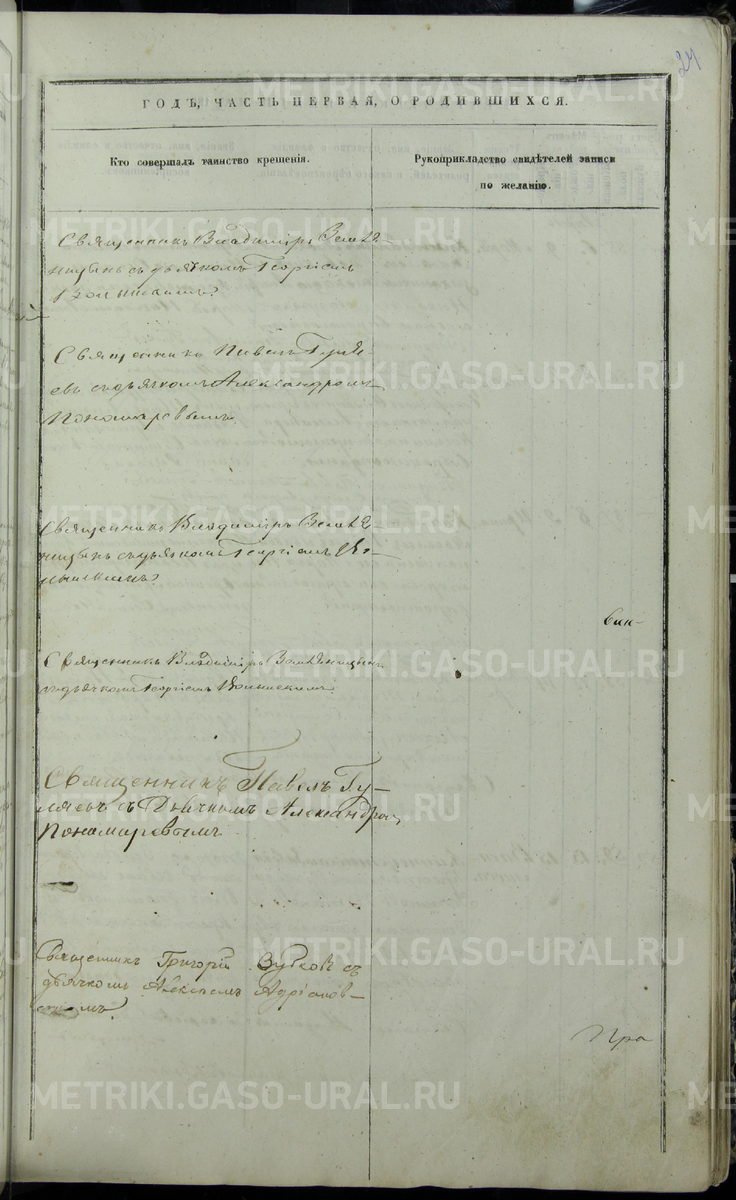 24
ГОДЪ, ЧАСТЬ ПЕРВАЯ, О РОДИВШИХСЯ.
Кто совершалъ таинство крещенія.
Рукоприкладство свидѣтелей записи
по желанію.
Священникъ Владиміръ Земля-
ницынъ съ дьячкомъ Георгіемъ
Священникъ Павелъ Гуля-
евъ съ дьячкомъ Александромъ
Пономаревымъ
Священникъ Владиміръ Земля-
ницынъ съ дьячкомъ Георгіемъ
Священникъ Владиміръ Земляницынъ
съ дьячкомъ Георгіемъ
Священникъ Павелъ Гу-
ляевъ съ Дьячкомъ Александром
Пономаревымъ
Священникъ Григорій Зубковъ съ
дьячкомъ Алексѣемъ Адріанов-
скимъ.
Пра
METRIKI.GASO-URAL.RU